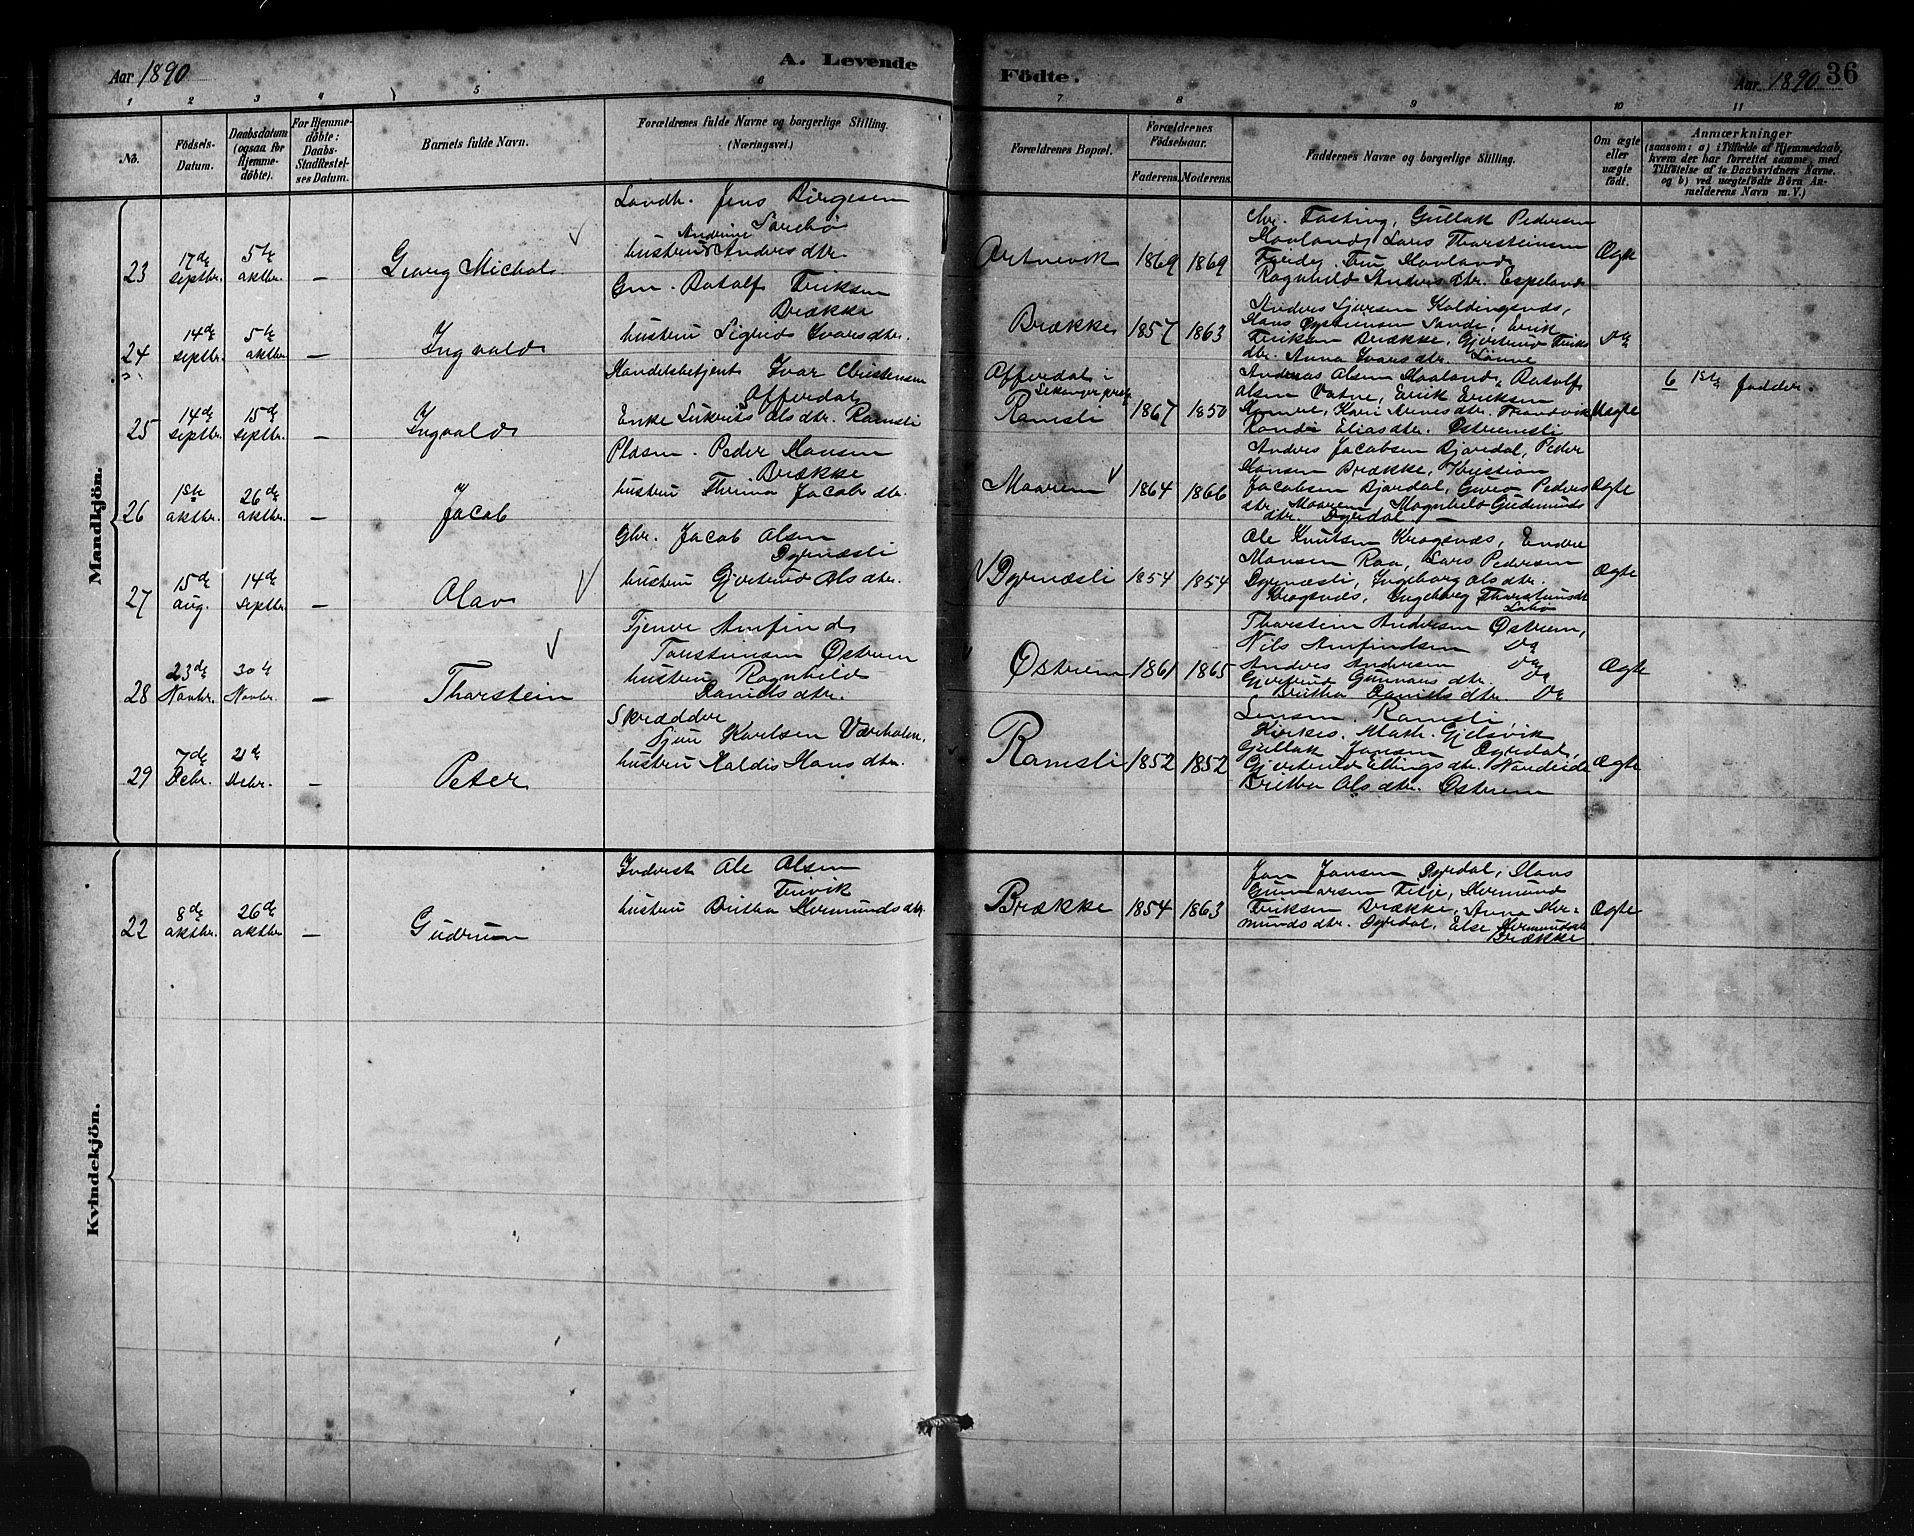 Aar 1890
A. Levende
Födte.
Aar 1890
36
1 2 3 4 5 6 7 8 9 10 11
No.
Födsels-
Datum.
Daabsdatum
(ogsaa for
Hjemme-
döbte).
For Hjemme-
döbte:
Daabs-
Stadfestel-
ses Datum.
Barnets fulde Navn.
Forældrenes fulde Navne og borgerlige Stilling.
(Næringsvei.)
Forældrenes Bopæl.
Forældrenes
Födselsaar.
Faderens. Moderens.
Faddernes Navne og borgerlige Stilling.
Om ægte
eller
uægte
födt.
Anmærkninger
(saasom: a) i Tilfælde af Hjemmedaab,
hvem der har forrettet samme, med
Tilföielse af to Daabsvidners Navne.
og b) ved uægtefödte Börn An-
melderens Navn m. V.)
Mandkjön.
23
17de
Septbr.
5te
oktbr.
—
Georg Michal
Landh. Jens Börgesen
Andrine
hustru Andersdtr.
Artnevik
1869
1869
Fasting, Gullak Pedersen
Haaland, Lars Thorsteinsen
Haaland
Ragnhild Andersdtr. Espeland
Ægte
24
14de
Septbr.
5te
oktbr.
—
Ingvald
Gm. Rotolf Eriksen
Brække
hustru Sigrid Ivarsdtr.
Brække
1857
1863
Hans Sande, Erik
Eriksen Brække, Gjertrud Eriks
dtr. Anna Ivarsdtr.
25
14de
Septbr.
15de
Septbr.
—
Ingvald
Handelsbetjent Ivar Christensen
Offerdal
Enke Olsdtr. Ramsli
Offerdal i
Ramsli
1867
1850
Andreas Olsen Haaland, Rotolf
Olsen Vatne, Erik Eriksen
Eliasdtr. Østremsli
Uægte
6 1ste fadder.
26
1ste
oktbr.
26de
oktbr.
—
Jacob
Plasm. Peder Hansen
Brække
hustru Jacobsdtr.
Maaren
1864
1866
Anders Jacobsen Bjordal, Peder
Hansen Brække, Kristian
Jacobsen Bjordal, Peders
dtr. Maaren, Magnhild Gudmunds
dtr. Dyrdal. —
Ægte
27
15de
aug.
14de
Septbr.
—
Olav
Gbr. Jacob Olsen
Dyrnæsli
hustru Gjertrud Olsdtr.
Dyrnæsli
1854
1854
Ole Knutsen Krogsnæs, Endre
Monsen Raa, Lars Pedersen
Dyrnæsli, Ingeborg Olsdtr.
Krogsnæs, Ingeborg
Ægte
28
23de
Novbr.
30te
Novbr.
—
Thorstein
Tjener Amfind
Torsteinsen Østrem
hustru Ragnhild
Danielsdtr.
Østrem
1861
1865
Thorstein Andersen Østrem,
Nils Amfindsen Do
Anders Andersen Do
Gjertrud Gunnarsdtr. Do
Britha Danielsdtr. Do
Ægte
29
7de
Debr.
21de
Debr.
—
Peter
Skrædder
Sjur Karlsen Værholm,
hustru Haldis Hansdtr.
Ramsli
1852
1852
Ramsli,
Kirkes. Math. Gjelsvik
Gullak Jonsen Dyrdal,
Gjertrud Ellingsdtr. Nordeide
Britha Olsdtr. Østrem
Ægte
Kvindekjön.
22
8de
oktbr.
26de
oktbr.
—
Gudrun
Inderst Ole Olsen
hustru Britha Hermundsdtr.
Brække
1854
1863
Jon Jonsen Dyrdal, Hans
Gunnarsen Tilje, Hermund
Eriksen Brække, Anna Her-
mundsdtr. Dyrdal, Else Hermundsdtr
Brække
Ægte